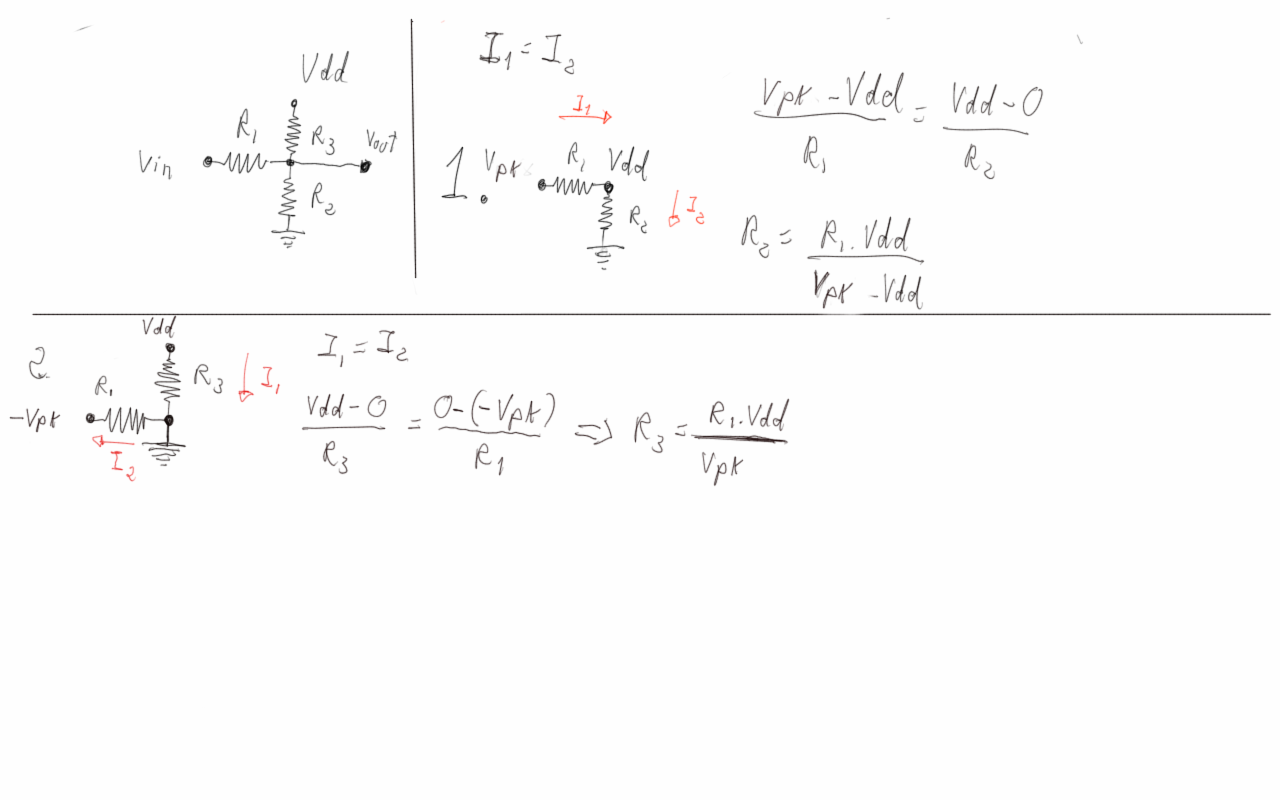 Vdd
R₁
R₃
Vout
Vin
R₂
I₁ = I₂
I₁
1. Vpk R₁ Vdd
R₂
I₂
(Vpk - Vdd)/R₁ = (Vdd - 0)/R₂
R₂ = (R₁.Vdd)/(Vpk - Vdd)
2
Vdd
R₃
I₁
R₁
-Vpk
I₂
I₁ = I₂
(Vdd - 0)/R₃ = (0-(-Vpk))/R1 => R₃ = (R₁.Vdd)/Vpk